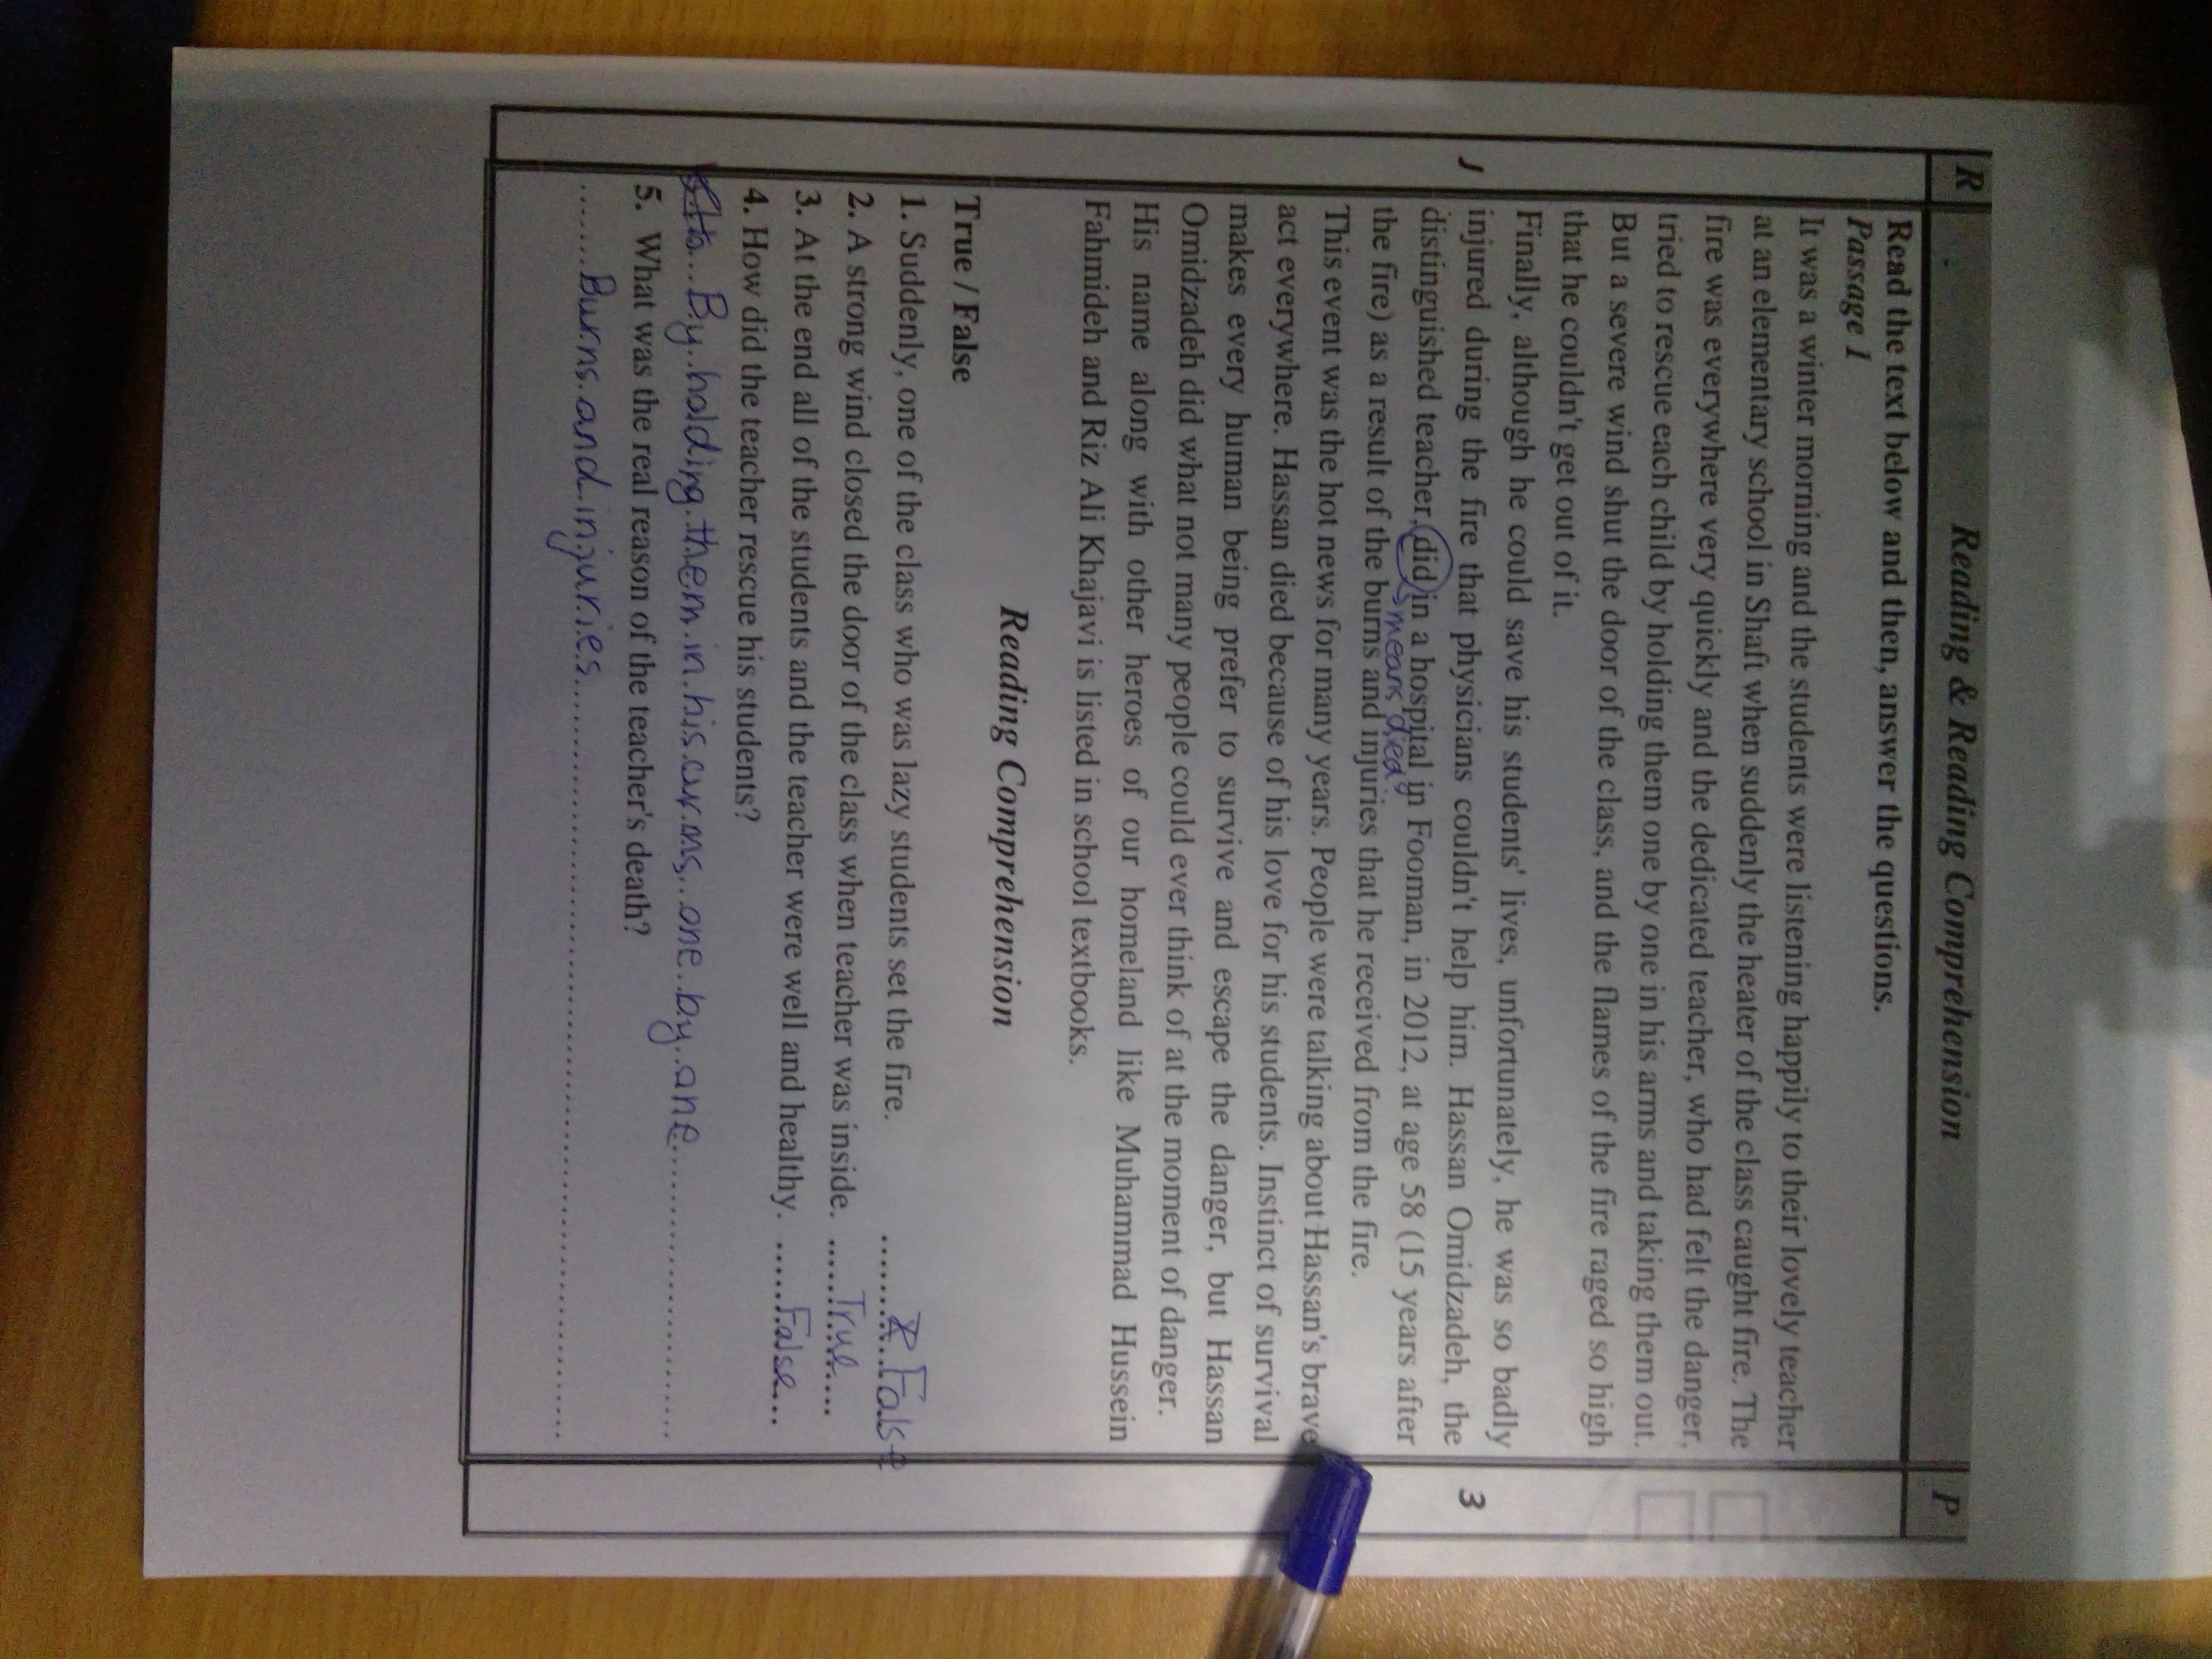 R Reading & Reading Comprehension P
Read the text below and then, answer the questions.
Passage 1
It was a winter morning and the students were listening happily to their lovely teacher
at an elementary school in Shaft when suddenly the heater of the class caught fire. The
fire was everywhere very quickly and the dedicated teacher, who had felt the danger,
tried to rescue each child by holding them one by one in his arms and taking them out.
But a severe wind shut the door of the class, and the flames of the fire raged so high
that he couldn't get out of it.
Finally, although he could save his students' lives, unfortunately, he was so badly
J injured during the fire that physicians couldn't help him. Hassan Omidzadeh, the 3
distinguished teacher, did in a hospital in Fooman, in 2012, at age 58 (15 years after
means died
the fire) as a result of the burns and injuries that he received from the fire.
This event was the hot news for many years. People were talking about Hassan's brave
act everywhere. Hassan died because of his love for his students. Instinct of survival
makes every human being prefer to survive and escape the danger, but Hassan
Omidzadeh did what not many people could ever think of at the moment of danger.
His name along with other heroes of our homeland like Muhammad Hussein
Fahmideh and Riz Ali Khajavi is listed in school textbooks.
Reading Comprehension
True / False
1. Suddenly, one of the class who was lazy students set the fire. ........False
2. A strong wind closed the door of the class when teacher was inside. ......True......
3. At the end all of the students and the teacher were well and healthy. ......False...
4. How did the teacher rescue his students?
By holding them in his arms one by one
5. What was the real reason of the teacher's death?
......Burns and injuries......